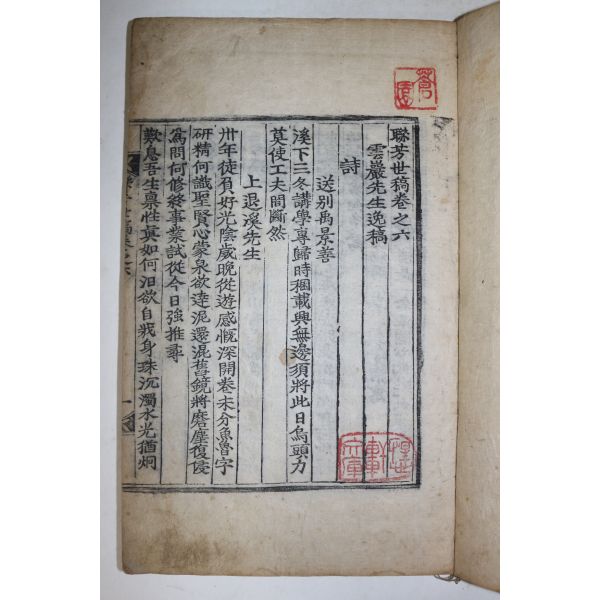 聯芳世稿卷之六
雲巖先生逸稿
詩
送別禹景善
溪下三冬講學專歸時稛載興無邊須將此日烏頭力
莫使工夫間斷然
上退溪先生
卅年徒負好光陰歲晚從遊感慨深開卷未分魚魯字
研精何識聖賢心蒙泉欲達泥還混舊鏡將磨塵復侵
爲問何修終事業試從今日強推尋
歎息吾生稟性眞如何汩欲自戕身珠沉濁水光猶炯